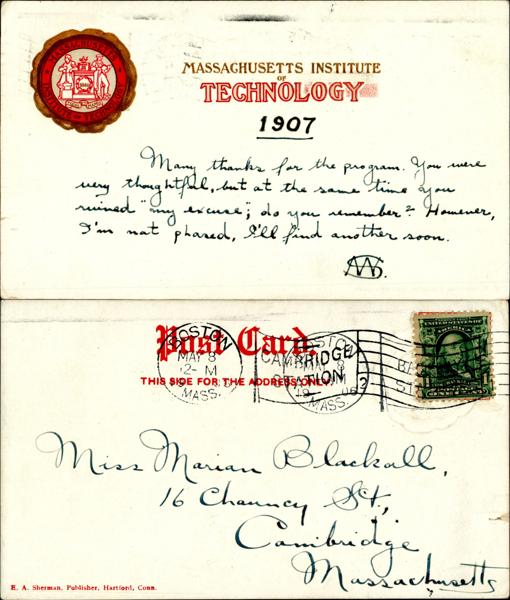 MASSACHUSETTS
INSTITUTE OF TECHNOLOGY
MASSACHUSETTS INSTITUTE
OF
TECHNOLOGY
1907
Many thanks for the program. You were
very thoughtful, but at the same time you
ruined "my excuse"; do you remember? However,
I'm not phased, I'll find another soon.
Post Card.
THIS SIDE FOR THE ADDRESS ONLY.
BOSTON
MAY 8
12- M
MASS.
BOSTON
CAMBRIDGE
STATION
MASS.
2
UNITED STATES OF
AMERICA
Miss Marian Blackall,
16 Chauncy St,
Cambridge
Massachusetts
E. A. Sherman, Publisher, Hartford, Conn.